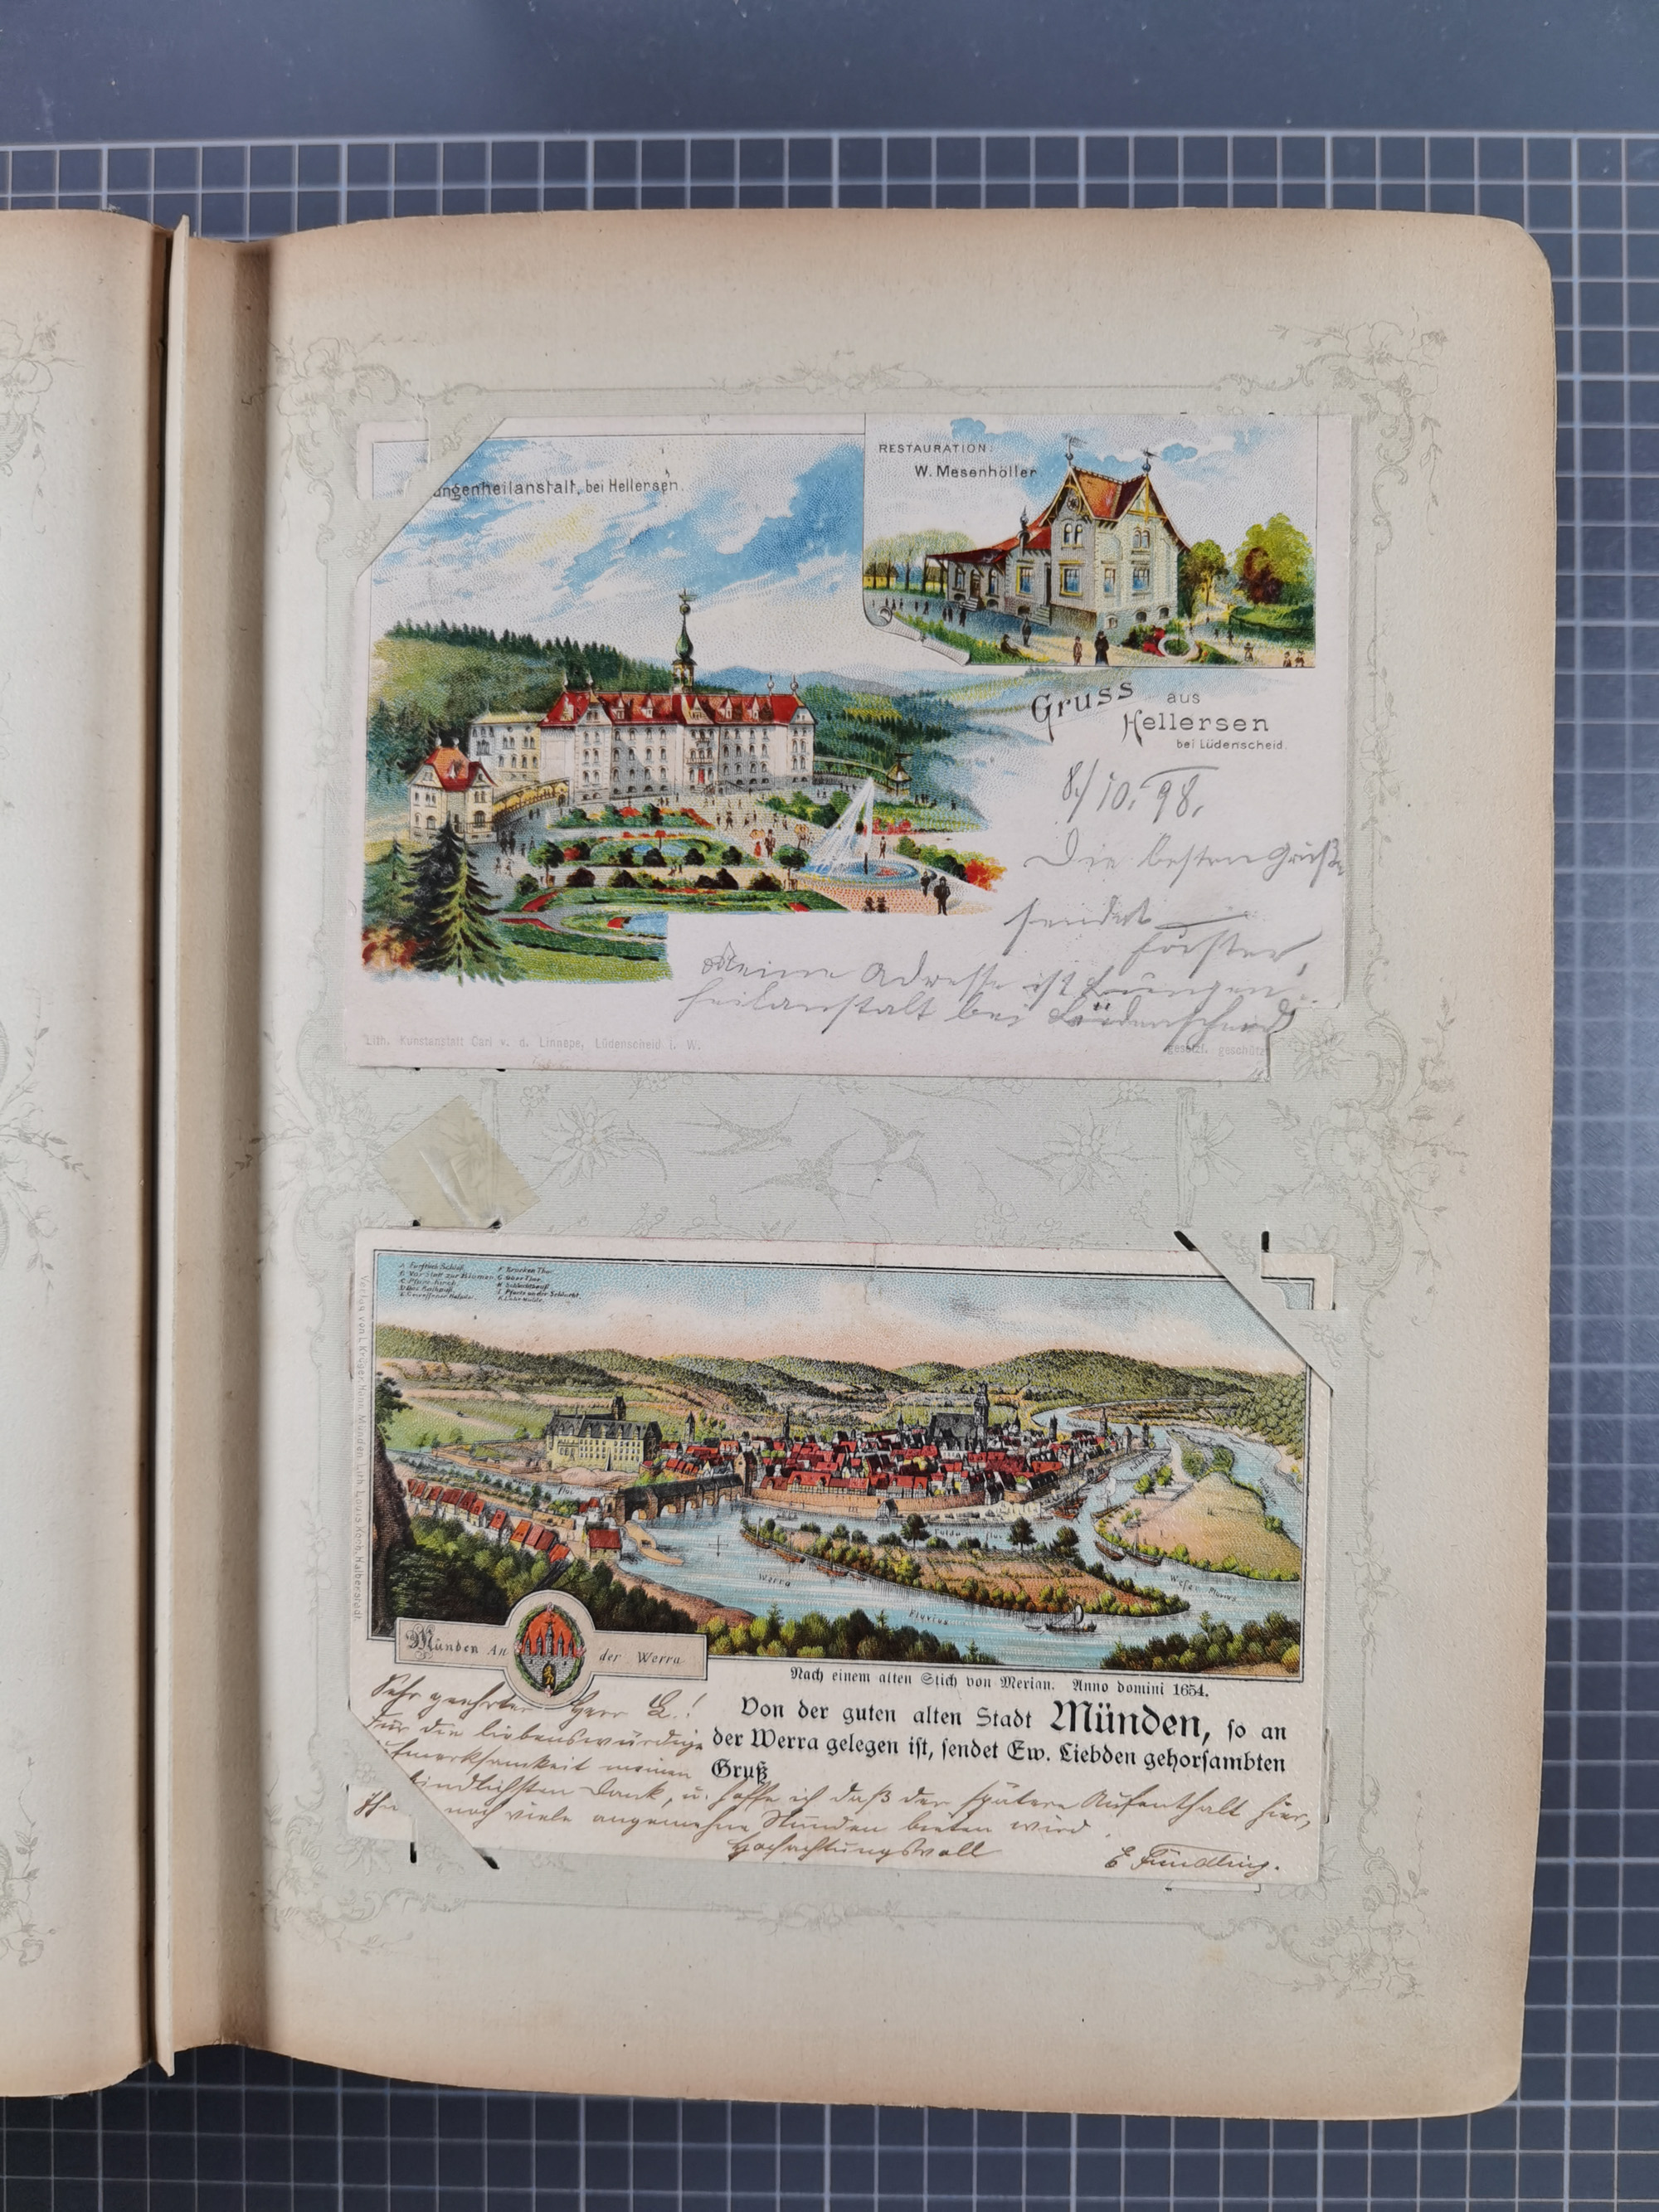 ungenheilanstalt, bei Hellersen.
RESTAURATION:
W. Mesenhöller
Gruss aus
Hellersen
bei Lüdenscheid.
8./10. 98.
Die besten Grüße
sendet
Förster,
Meine Adresse ist Lungen-
heilanstalt bei Lüdenscheid
Lith. Kunstanstalt Carl v. d. Linnepe, Lüdenscheid i. W.
gesetzl. geschützt
A Fürstlich Schloß.
B Vor Statt zur Blumen.
C Pfarr Kirch.
D Das Rathauß.
F Brucken Thor.
G Ober Thor.
H Schlachthauß.
Verlag von L. Krüger, Hann. Münden. Lith. Louis Koch, Halberstadt.
Fulda flus
Werra
Fluvius
Weser Fluvius
Münden An der Werra
Nach einem alten Stich von Merian. Anno domini 1654.
Von der guten alten Stadt Münden, so an
der Werra gelegen ist, sendet Ew. Liebden gehorsambten
Gruß
Sehr geehrter Herr L.!
Für die liebenswürdige
ufmerksamkeit meinen
bindlichsten Dank, u. hoffe ich daß der spätere Aufenthalt hier,
Ihn noch viele angenehme Stunden bieten wird.
Hochachtungsvoll
E Fündling.